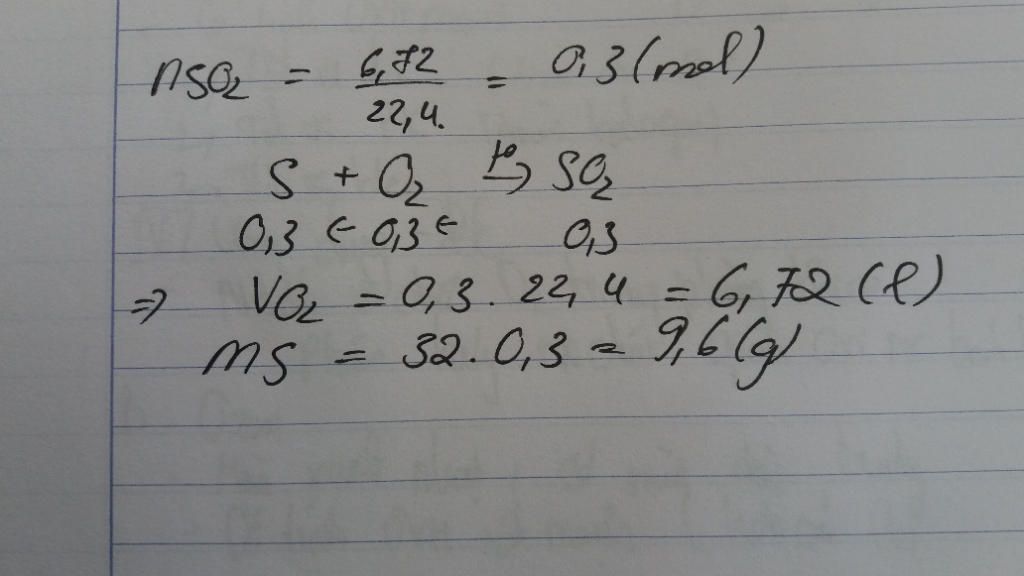 nSO₂ = 6,72 / 22,4. = 0,3 (mol)
S + O₂ →(t°) SO₂
0,3 ← 0,3 ← 0,3
⇒ VO₂ = 0,3 . 22,4 = 6,72 (l)
mS = 32 . 0,3 = 9,6 (g)